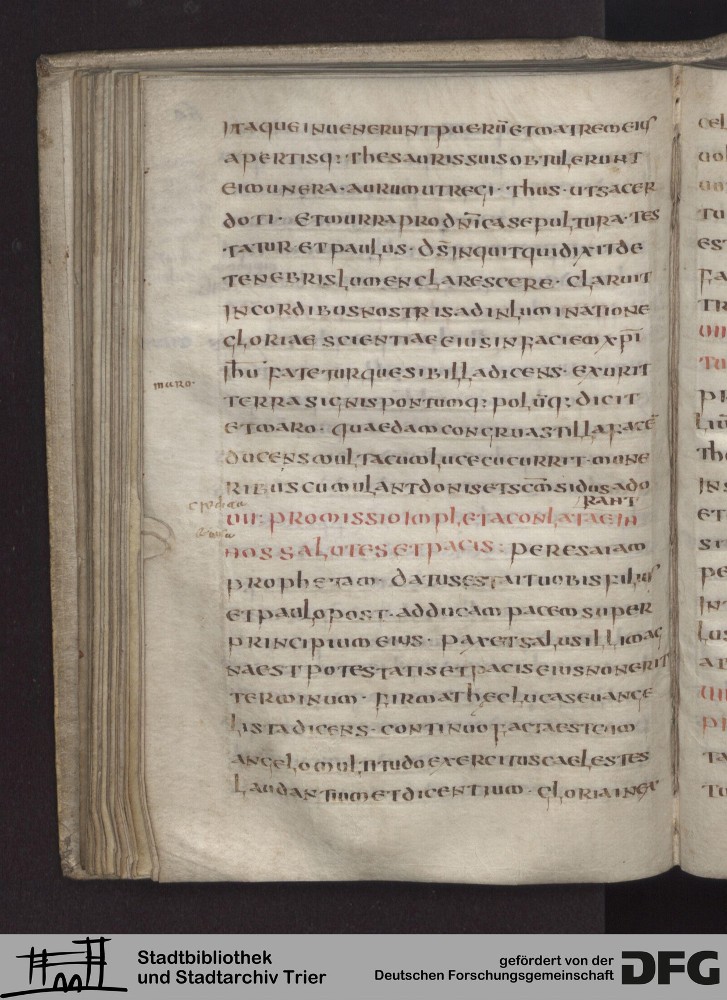 itaque inuenerunt puerū et matrem eius
apertisq: thesauris suis obtulerunt
ei munera · aurum ut regi · thus · ut sacer
doti · et murra pro dn̄ica sepultura · tes
tatur et paulus · ds̄ inquit qui dixit de
tenebris lumen clarescere · claruit
in cordibus nostris ad inluminatione
gloriae scientiae eius in faciem xp̄i
ihū fatetur quesibilla dicens · exurit
terras ignis pontumq: polūq: dicit
et maro · quaedam congrua stilla facē
ducens multa cum luce cucurrit · mune
ribus cumulant donis et scm̄ sidus ado
rant
uii · promissio impleta conlatae in
nos salutes et pacis : per esaiam
prophetam · datus est ait uobis filius
et paulo post · adducam pacem super
principium eius · pax et salus illi mag
na est potestatis et pacis eius non erit
terminum · firmat hec lucas euange
lista dicens · continuo facta est cum
angelo multitudo exercitus caelestes
laudantium et dicentium · gloria in ex
maro ·
Stadtbibliothek
und Stadtarchiv Trier
gefördert von der
Deutschen Forschungsgemeinschaft
DFG